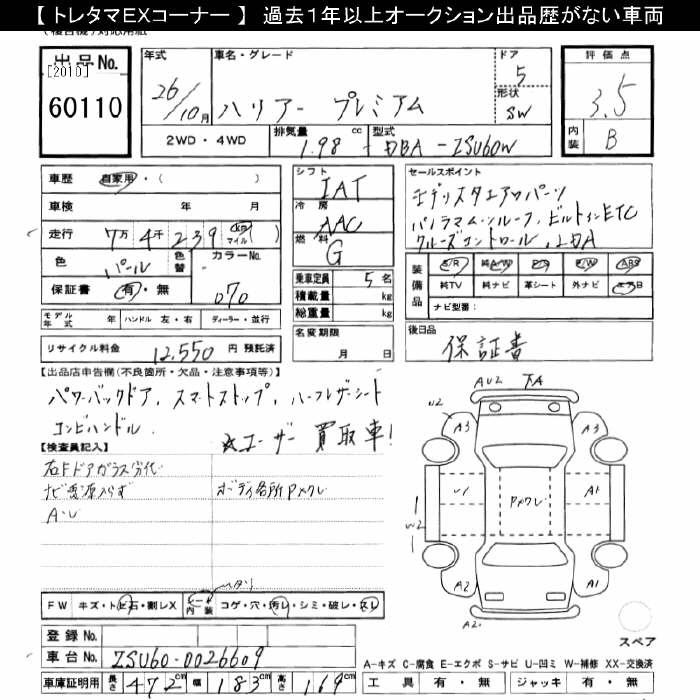 【 トレタマEXコーナー 】 過去１年以上オークション出品歴がない車両
出品No. [2010] 60110
年式 26/10月
車名・グレード ハリアー プレミアム
ドア 5
形状 SW
評価点 3.5
内装 B
2WD・4WD
排気量 1.98 cc
型式 DBA - ZSU60W
車歴 自家用・( )
車検 年 月
走行 7万4千239 (km マイル)
色 パール
色替
カラーNo. 070
保証書 有・無
モデル年式 年 ハンドル 左・右 ディーラー・並行
リサイクル料金 12,550 円 預託済
シフト IAT
冷房 AAC
燃料 G
乗車定員 5 名
積載量 kg
総重量 kg
名変期限 月 日
セールスポイント
モデリスタエアロパーツ
パノラマムーンルーフ、ビルトインETC
クルーズコントロール、LDA
装備品 S/R 純A/W P/S P/W ABS
純TV 純ナビ 革シート 外ナビ エアB
ナビ型番：
後日品
保証書
【出品店申告欄(不良箇所・欠品・注意事項等)】
パワーバックドア、スマートストップ、ハーフレザーシート
コンビハンドル、
☆ユーザー買取車!
【検査員記入】
右Fドアガラス劣化
ナビ電源入らず
A・U
ボディ各所Pメクレ
FW キズ・ト石・割レX
シート内装 コゲ・穴・汚レ・シミ・破レ・スレ
登録No.
車台No. ZSU60-0026609
車庫証明用 長さ 472cm 幅 183cm 高さ 169cm
AU2 下A
W2 A3 A3
U1 Pメクレ A1
W2
A2 A1
A2
スペア
A-キズ C-腐食 E-エクボ S-サビ U-凹ミ W-補修 XX-交換済
工具 有・無 ジャッキ 有・無